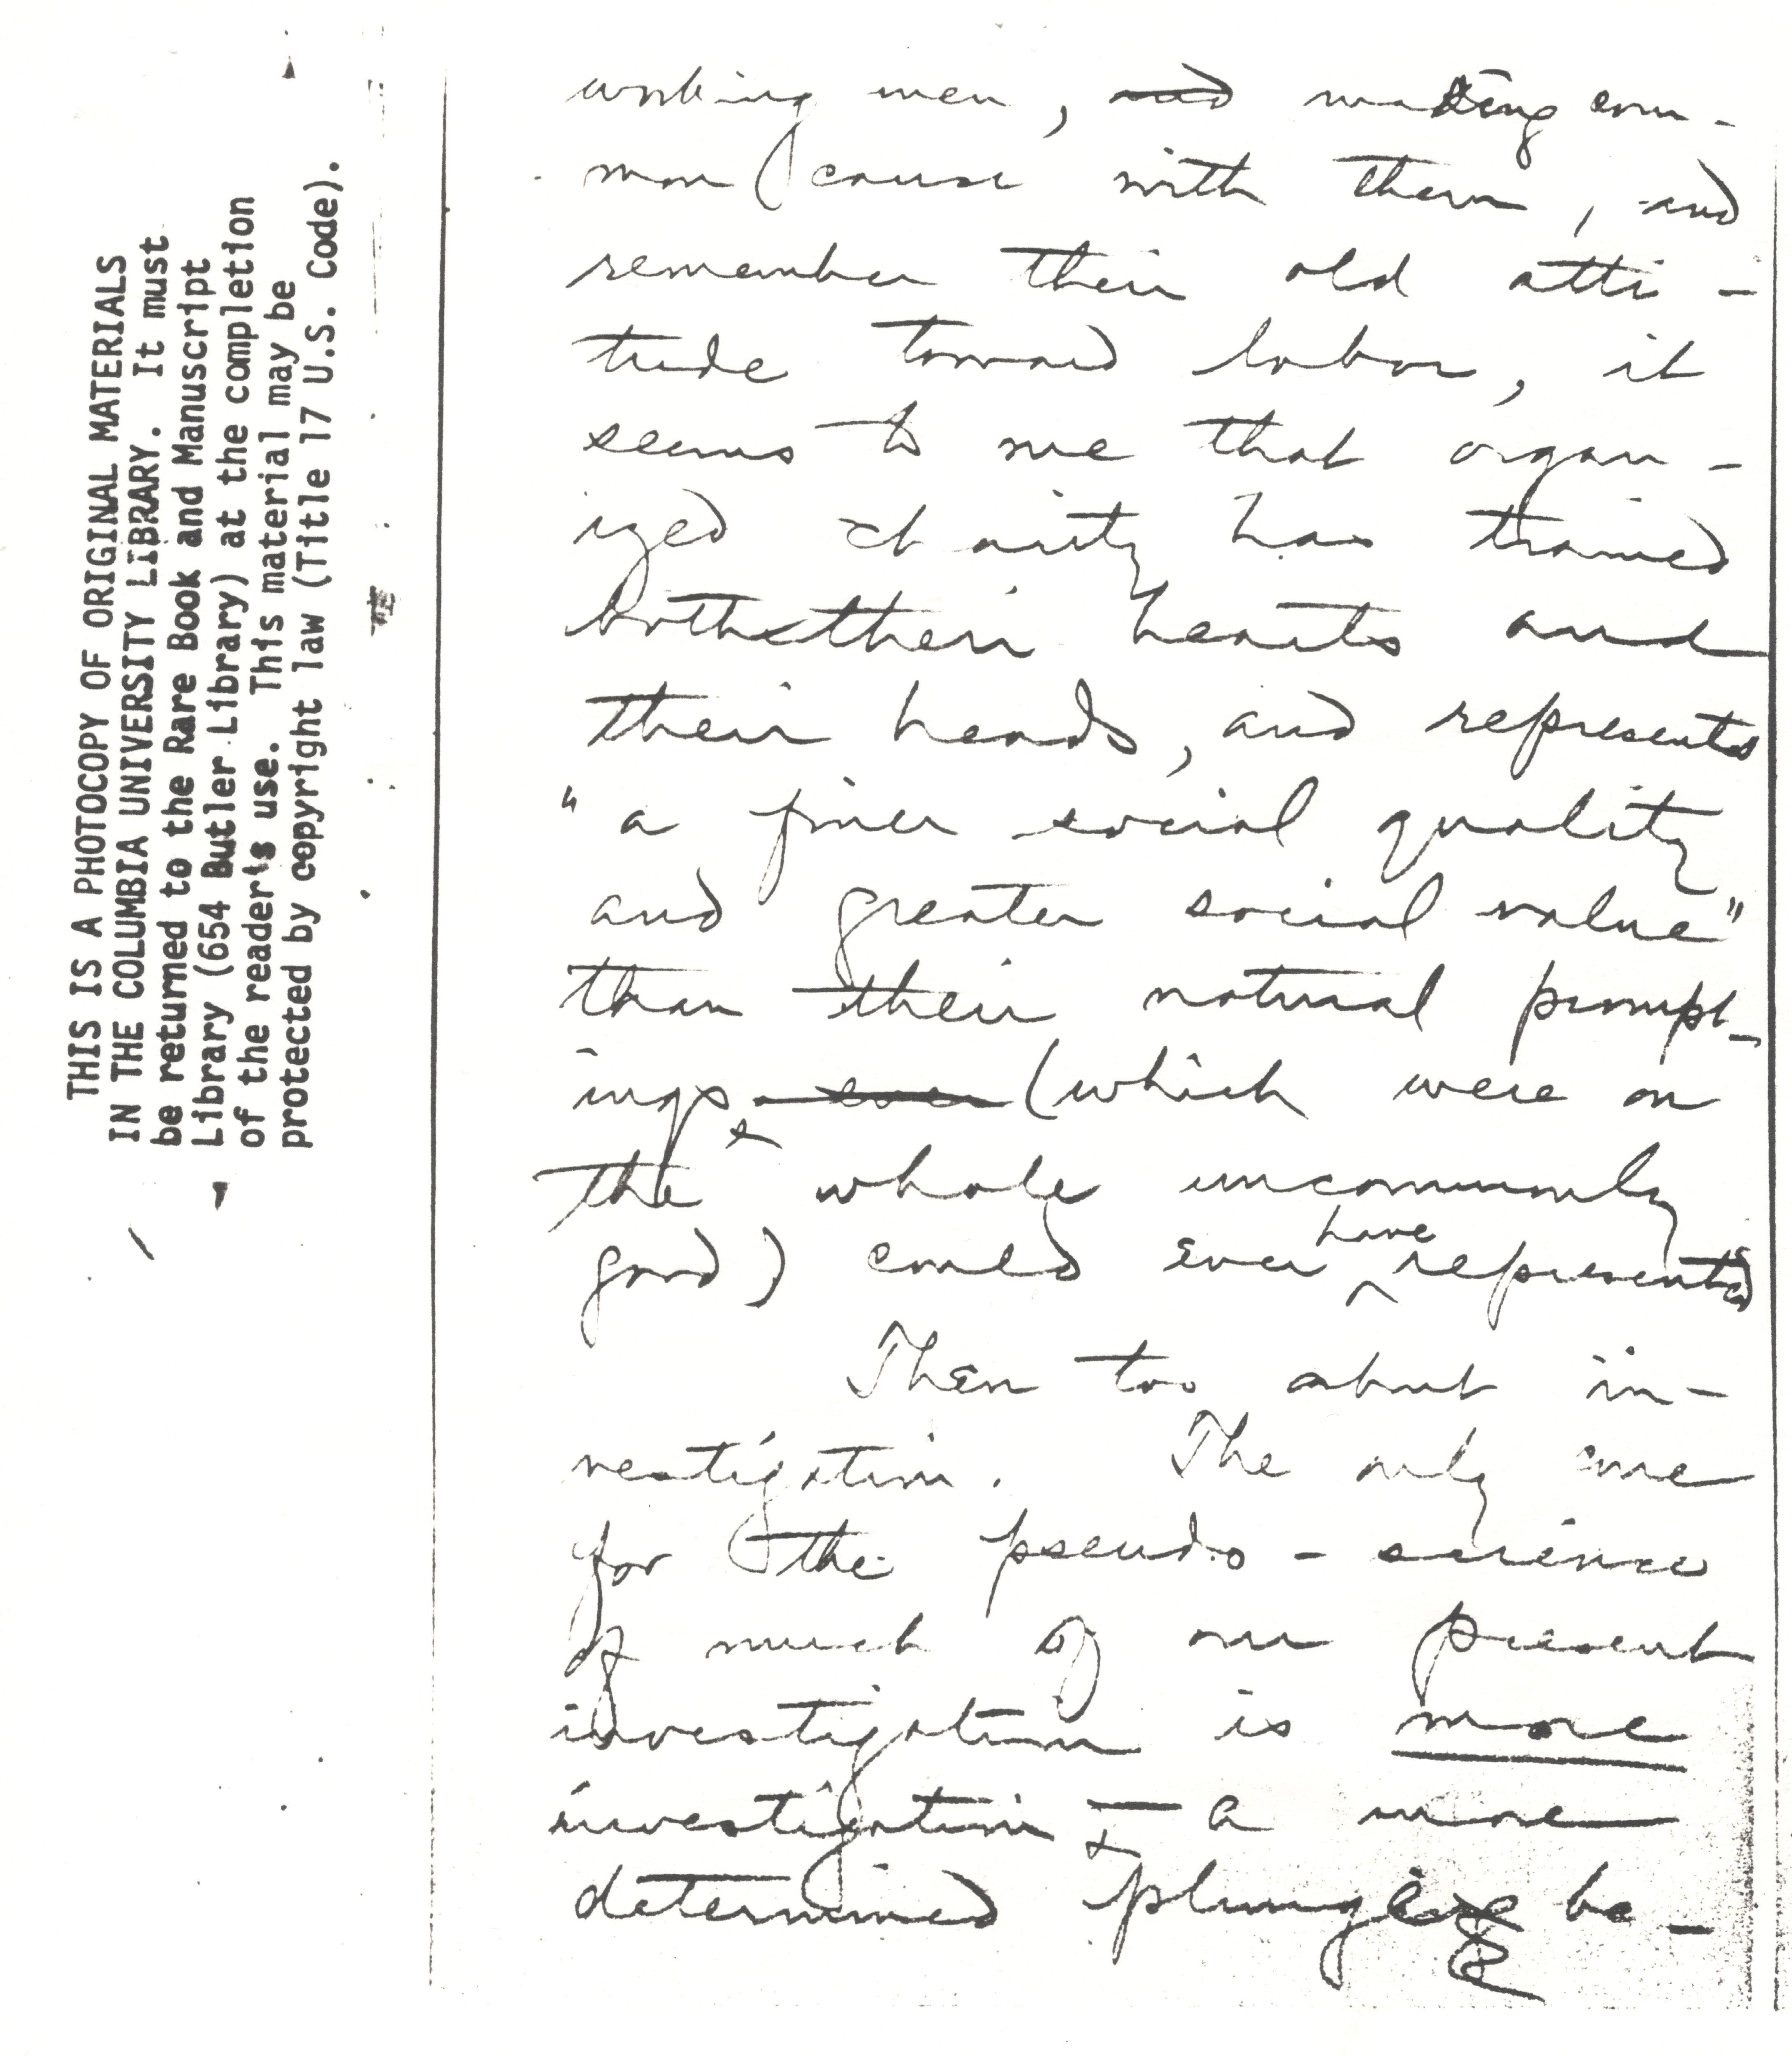 THIS IS A PHOTOCOPY OF ORIGINAL MATERIALS
IN THE COLUMBIA UNIVERSITY LIBRARY. It must
be returned to the Rare Book and Manuscript
Library (654 Butler Library) at the completion
of the reader's use. This material may be
protected by copyright law (Title 17 U.S. Code).
working men, and making com-
mon cause with them, and
remember their old atti-
tude toward labor, it
seems to me that organ-
ized charity has trained
both their hearts and
their heads, and represents
"a finer social quality
and greater social value"
than their natural prompt-
ings ever (which were on
the whole uncommonly
good) could ever have represented
Then too about in-
vestigation. The only cure
for the pseudo-science
of much of our present
investigation is more
investigation — a more
determined plunge be-